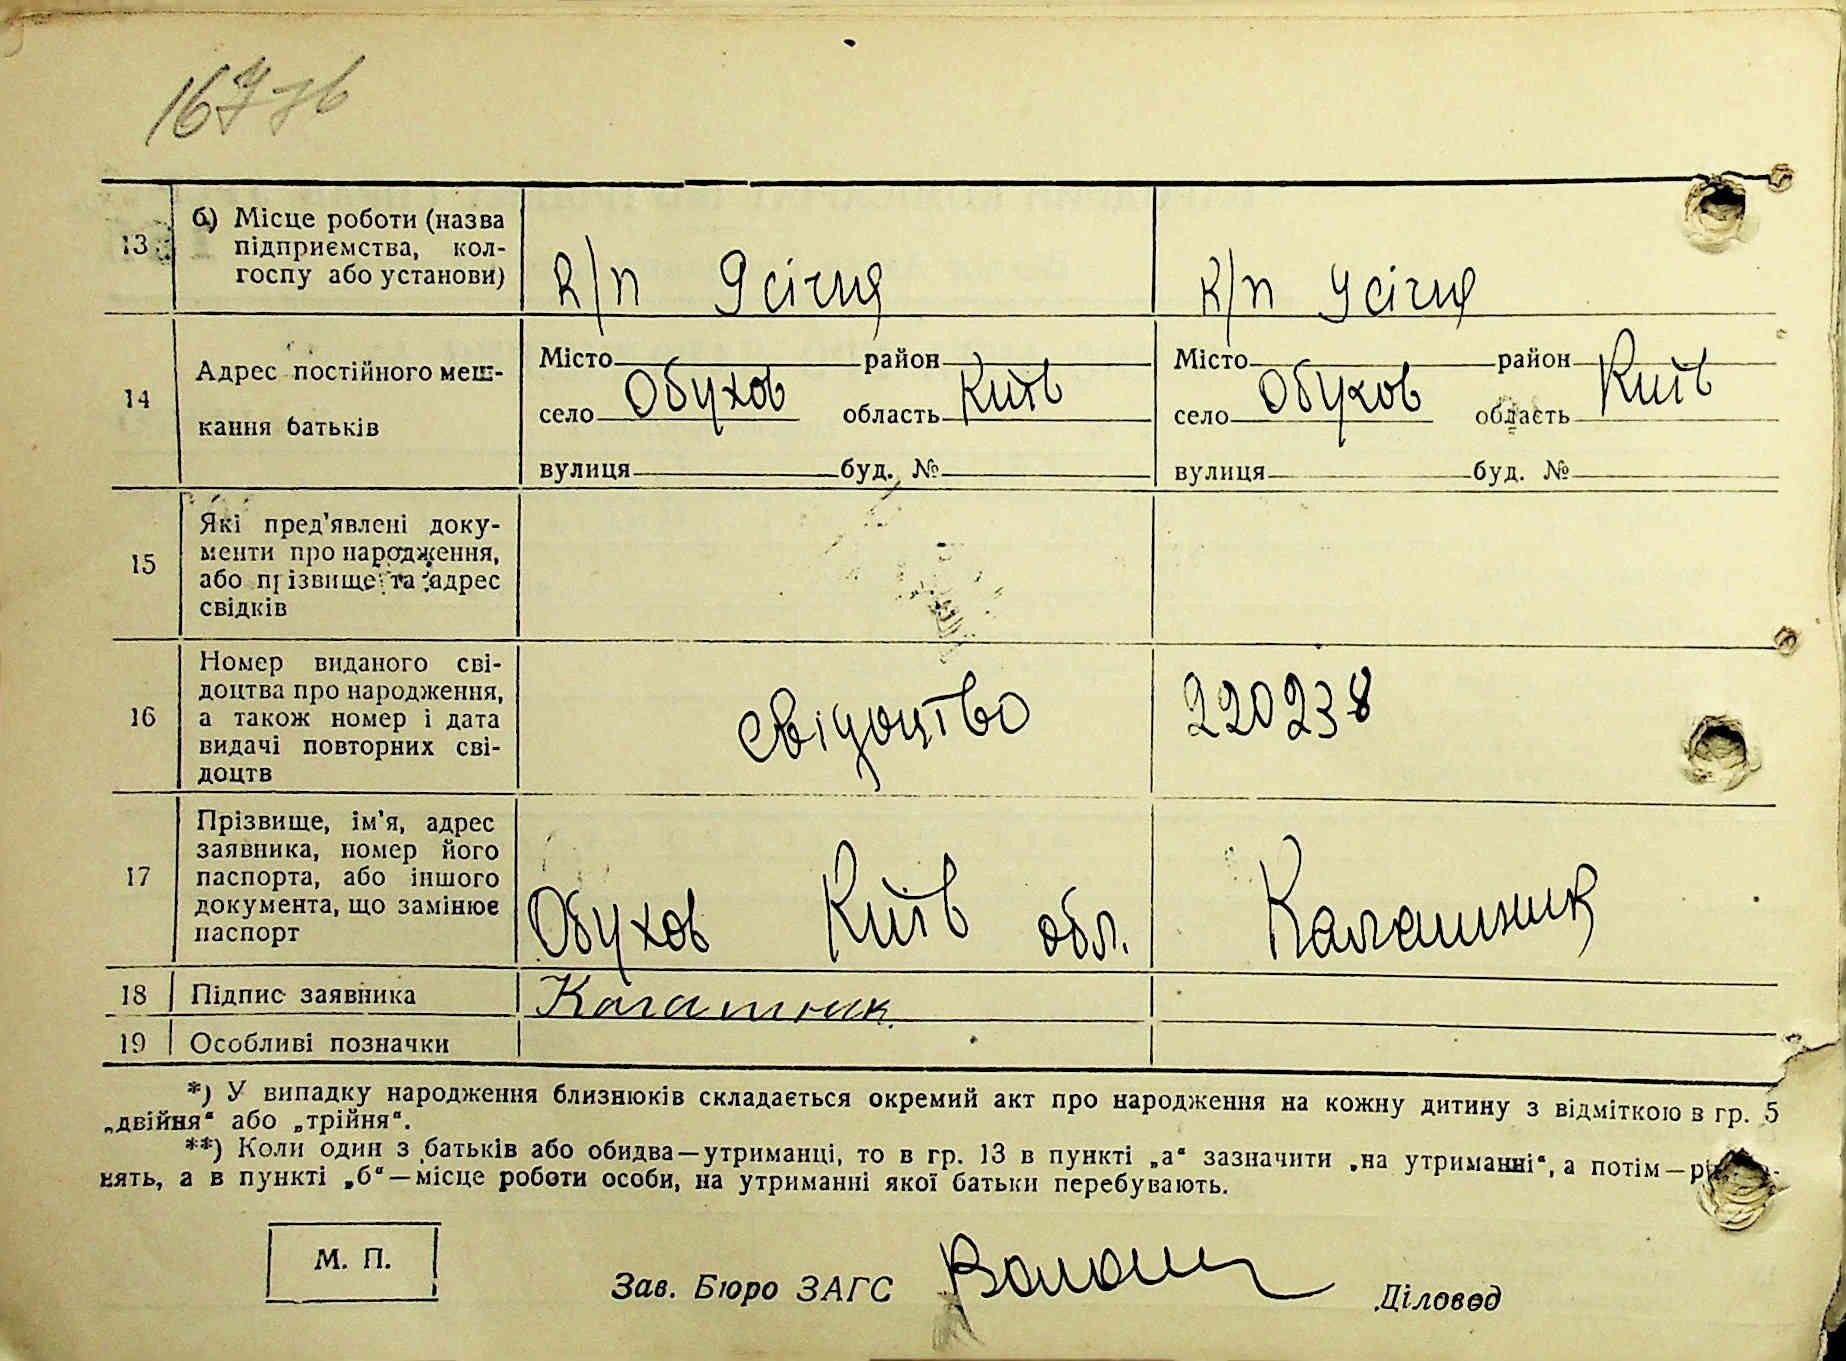 13 б) Місце роботи (назва
підприємства, кол-
госпу або установи)
к/п 9 січня к/п 9 січня
14 Адрес постійного меш-
кання батьків
Місто район Місто район
село Обухов область Київ село Обухов область Київ
вулиця буд. № вулиця буд. №
15 Які пред'явлені доку-
менти про народження,
або прізвище та адрес
свідків
16 Номер виданого сві-
доцтва про народження,
а також номер і дата
видачі повторних сві-
доцтв
свідоцтво 220238
17 Прізвище, ім'я, адрес
заявника, номер його
паспорта, або іншого
документа, що замінює
паспорт
Обухов Київ обл. Калашник
18 Підпис заявника Калашник
19 Особливі позначки
*) У випадку народження близнюків складається окремий акт про народження на кожну дитину з відміткою в гр. 5
„двійня“ або „трійня“.
**) Коли один з батьків або обидва—утриманці, то в гр. 13 в пункті „а“ зазначити „на утриманні“, а потім—
нять, а в пункті „б“—місце роботи особи, на утриманні якої батьки перебувають.
М. П.
Зав. Бюро ЗАГС Діловод